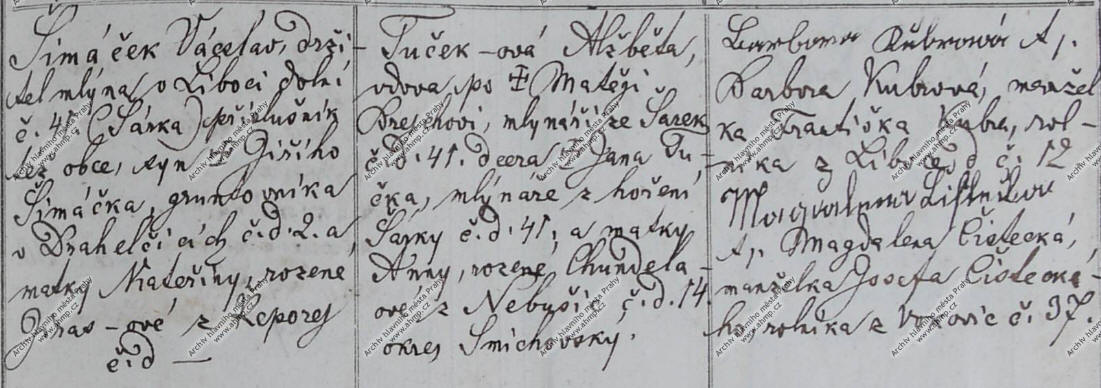 Šimáček Václav, drži-
tel mlýna v Liboci dolní
č. 41 (Šárka) příslušník
též obce, syn ✝ Jiřího
Šimáčka, gruntovníka
v Drahelčicích č.d. 2. a
matky Kateřiny, rozené
-ové z Řeporej
č.d —
Tuček-ová Alžběta,
vdova po ✝ Matěji
Dreschovi, mlynáři ze Šárek
č.d. 41. dcera Jana Tu-
čka, mlynáře z hoření
Šárky č.d. 41, a matky
Anny, rozené Chundela-
ové z Nebušic č.d. 14
okres Smíchovský.
Barbora Kubrová t.j.
Barbora Kubrová, manžel
ka Františka Kubra, rol-
níka z Liboce d č. 12
Magdalena
t.j. Magdalena Čistecká,
manželka Josefa Čistecké-
ho, rolníka z Vokovic č. 37.